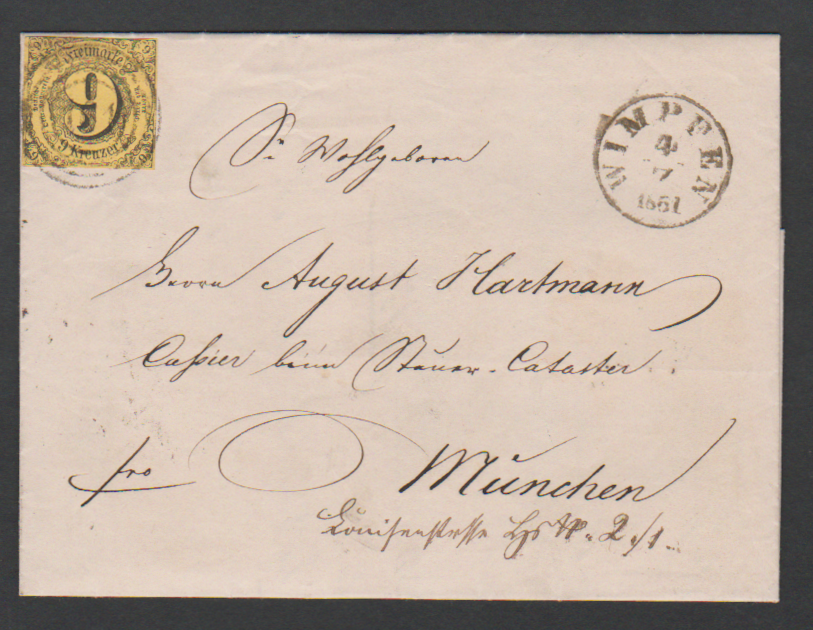 Freimarke
9
9 Kreuzer
WIMPFEN
4
7
1861
Sr Wohlgeboren
Herrn August Hartmann
Cassier beim Steuer-Cataster
fro München
Louisenstrasse Hs No. 2/1